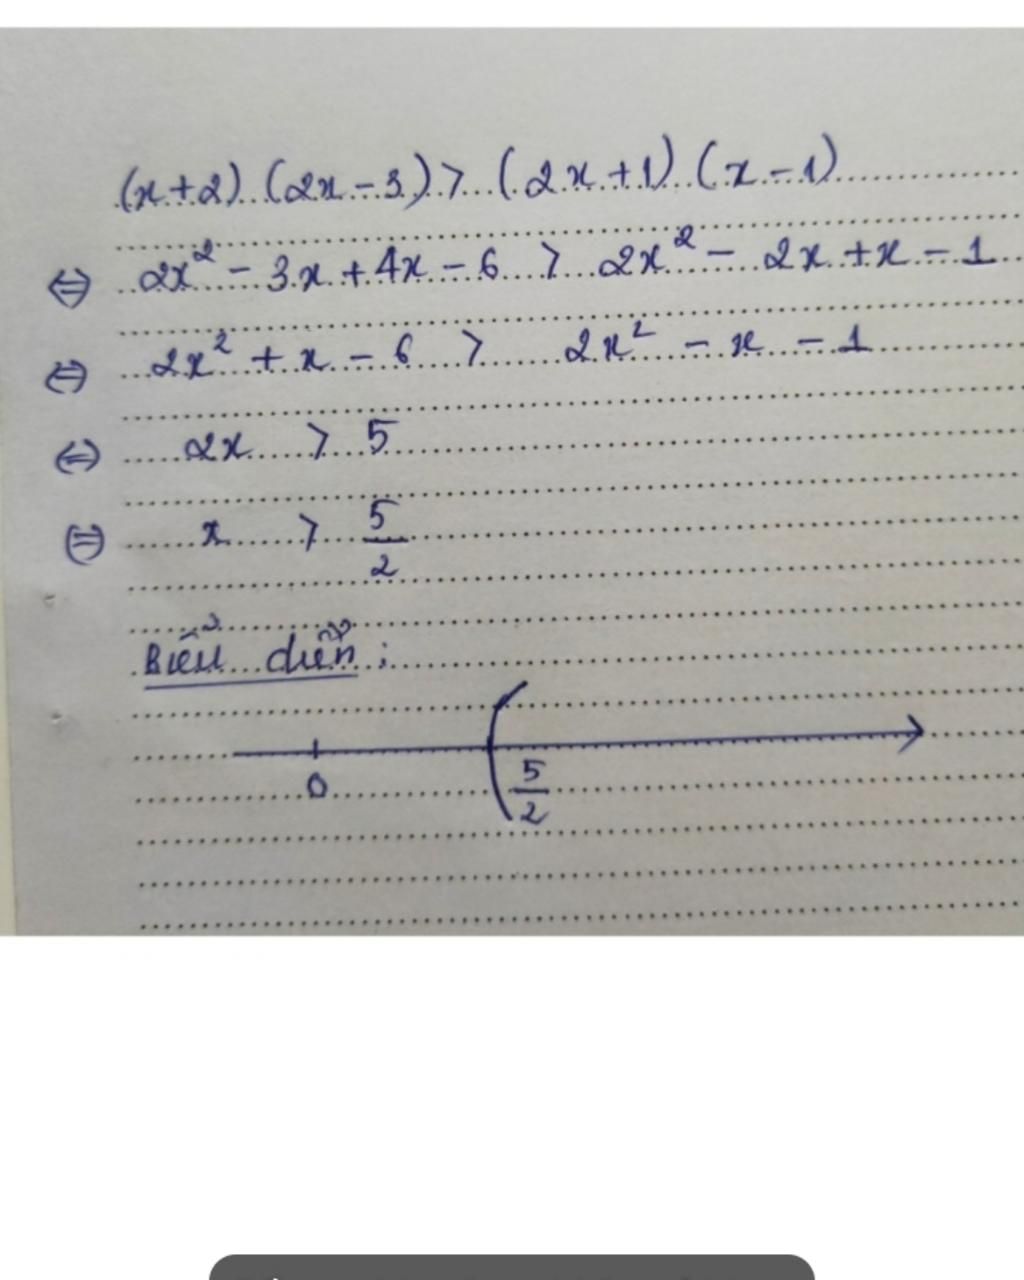 (x+2) (2x-3) > (2x+1) (x-1)
⇔ 2x² - 3x + 4x - 6 > 2x² - 2x + x - 1
⇔ 2x² + x - 6 > 2x² - x - 1
⇔ 2x > 5
⇔ x > 5/2
Biểu diễn :
0 ( 5/2